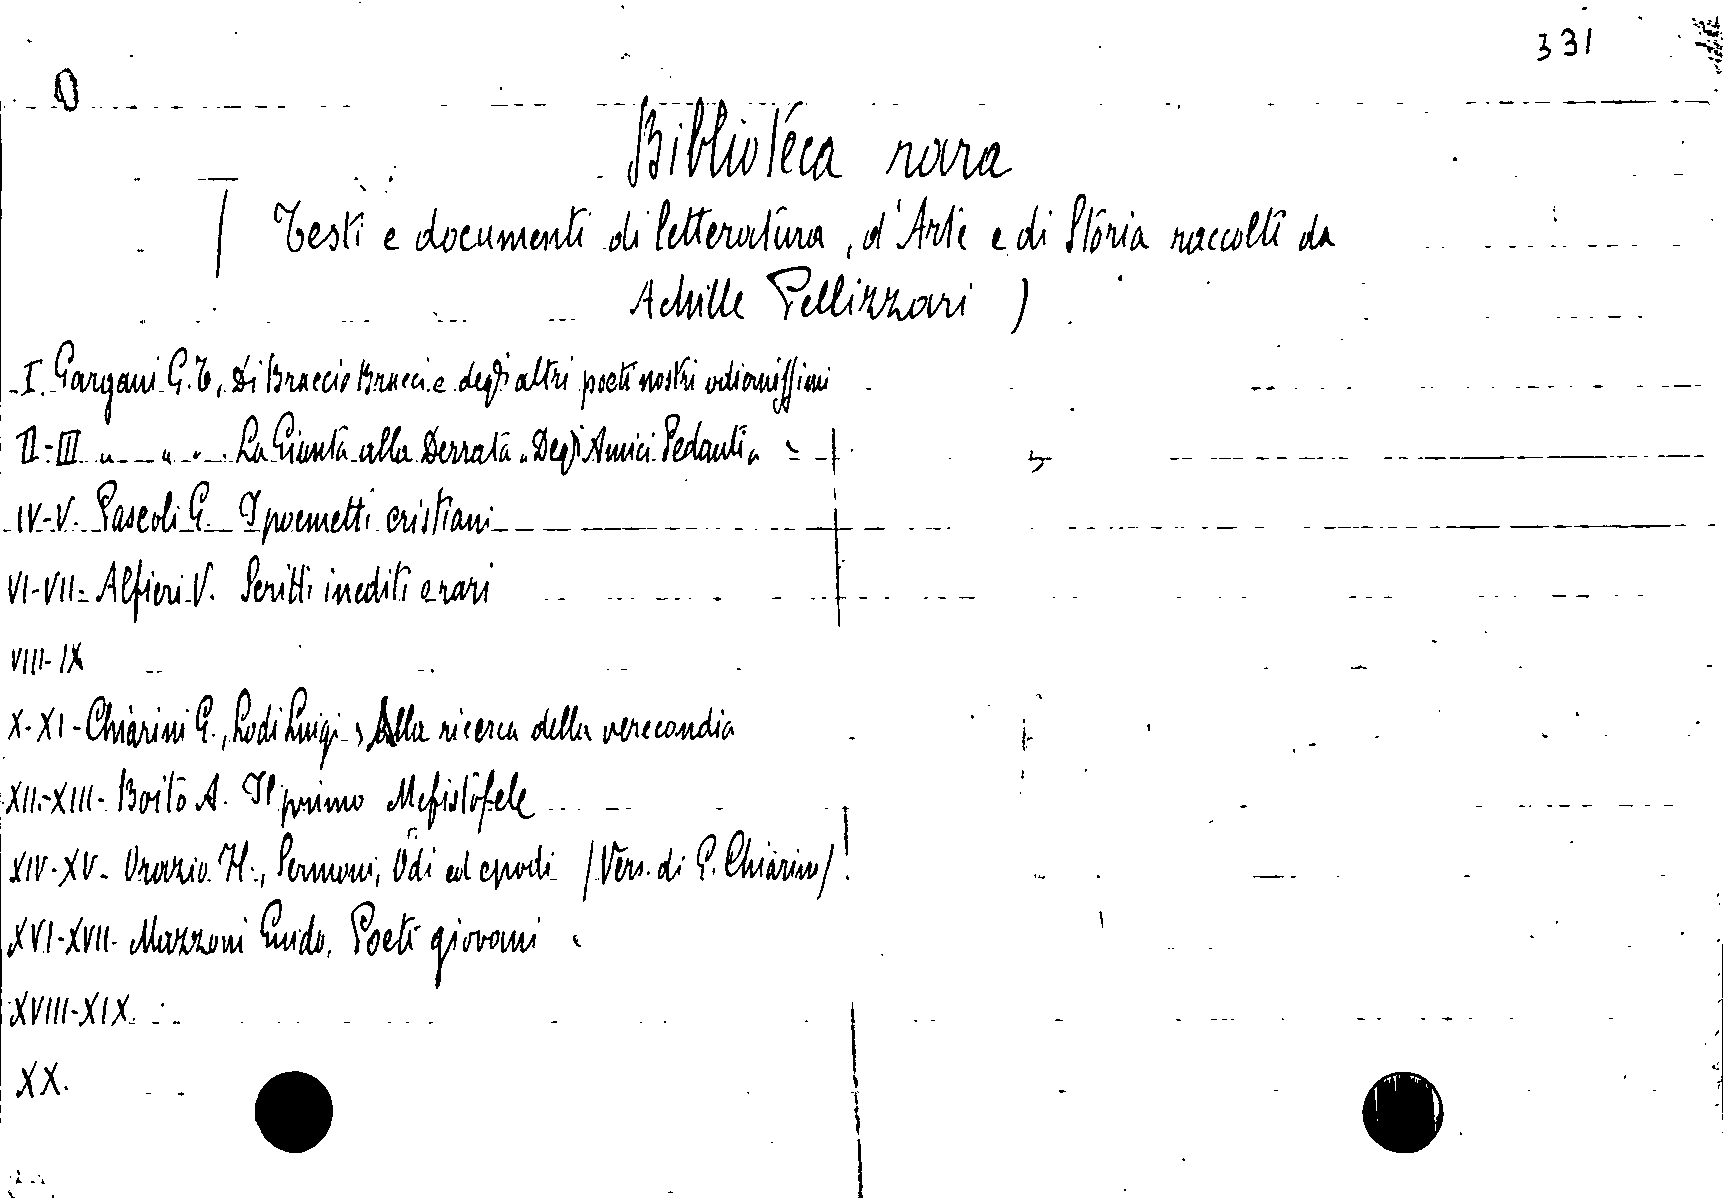 331
0
Biblioteca rara
( Testi e documenti di letteratura, d'Arte e di Storia raccolti da
Achille Pellizzari )
I. Gargani G.T, Di Braccio Bracci e degli altri poeti nostri odiernissimi
II-III " " " La Giunta alla Derrata "Degli Amici Pedanti"
IV-V. Pascoli G. I poemetti cristiani
VI-VII- Alfieri V. Scritti inediti e rari
VIII-IX
X-XI- Chiarini G., Lodi Luigi, Alla ricerca della verecondia
XII-XIII- Boito A. Il primo Mefistofele
XIV-XV- Orazio H., Sermoni, Odi ed epodi (Vers. di G. Chiarini)
XVI-XVII- Mazzoni Guido. Poeti giovani
XVIII-XIX.
XX.